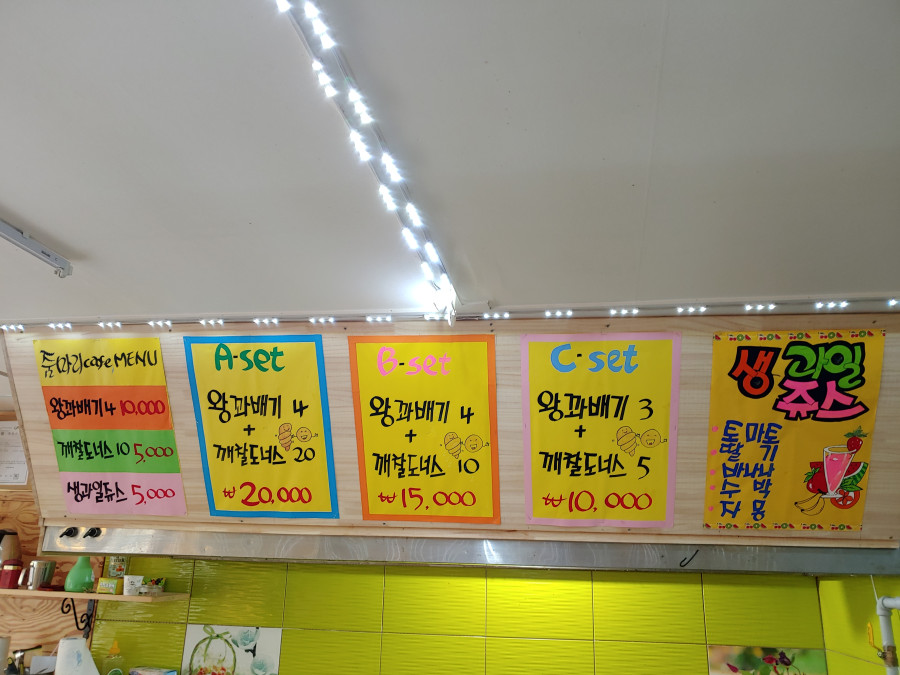 cafe MENU
왕꽈배기 4 10,000
깨찰도너스 10 5,000
생과일쥬스 5,000
A-set
왕꽈배기 4
+
깨찰도너스 20
₩20,000
B-set
왕꽈배기 4
+
깨찰도너스 10
₩15,000
C-set
왕꽈배기 3
+
깨찰도너스 5
₩10,000
생과일
쥬스